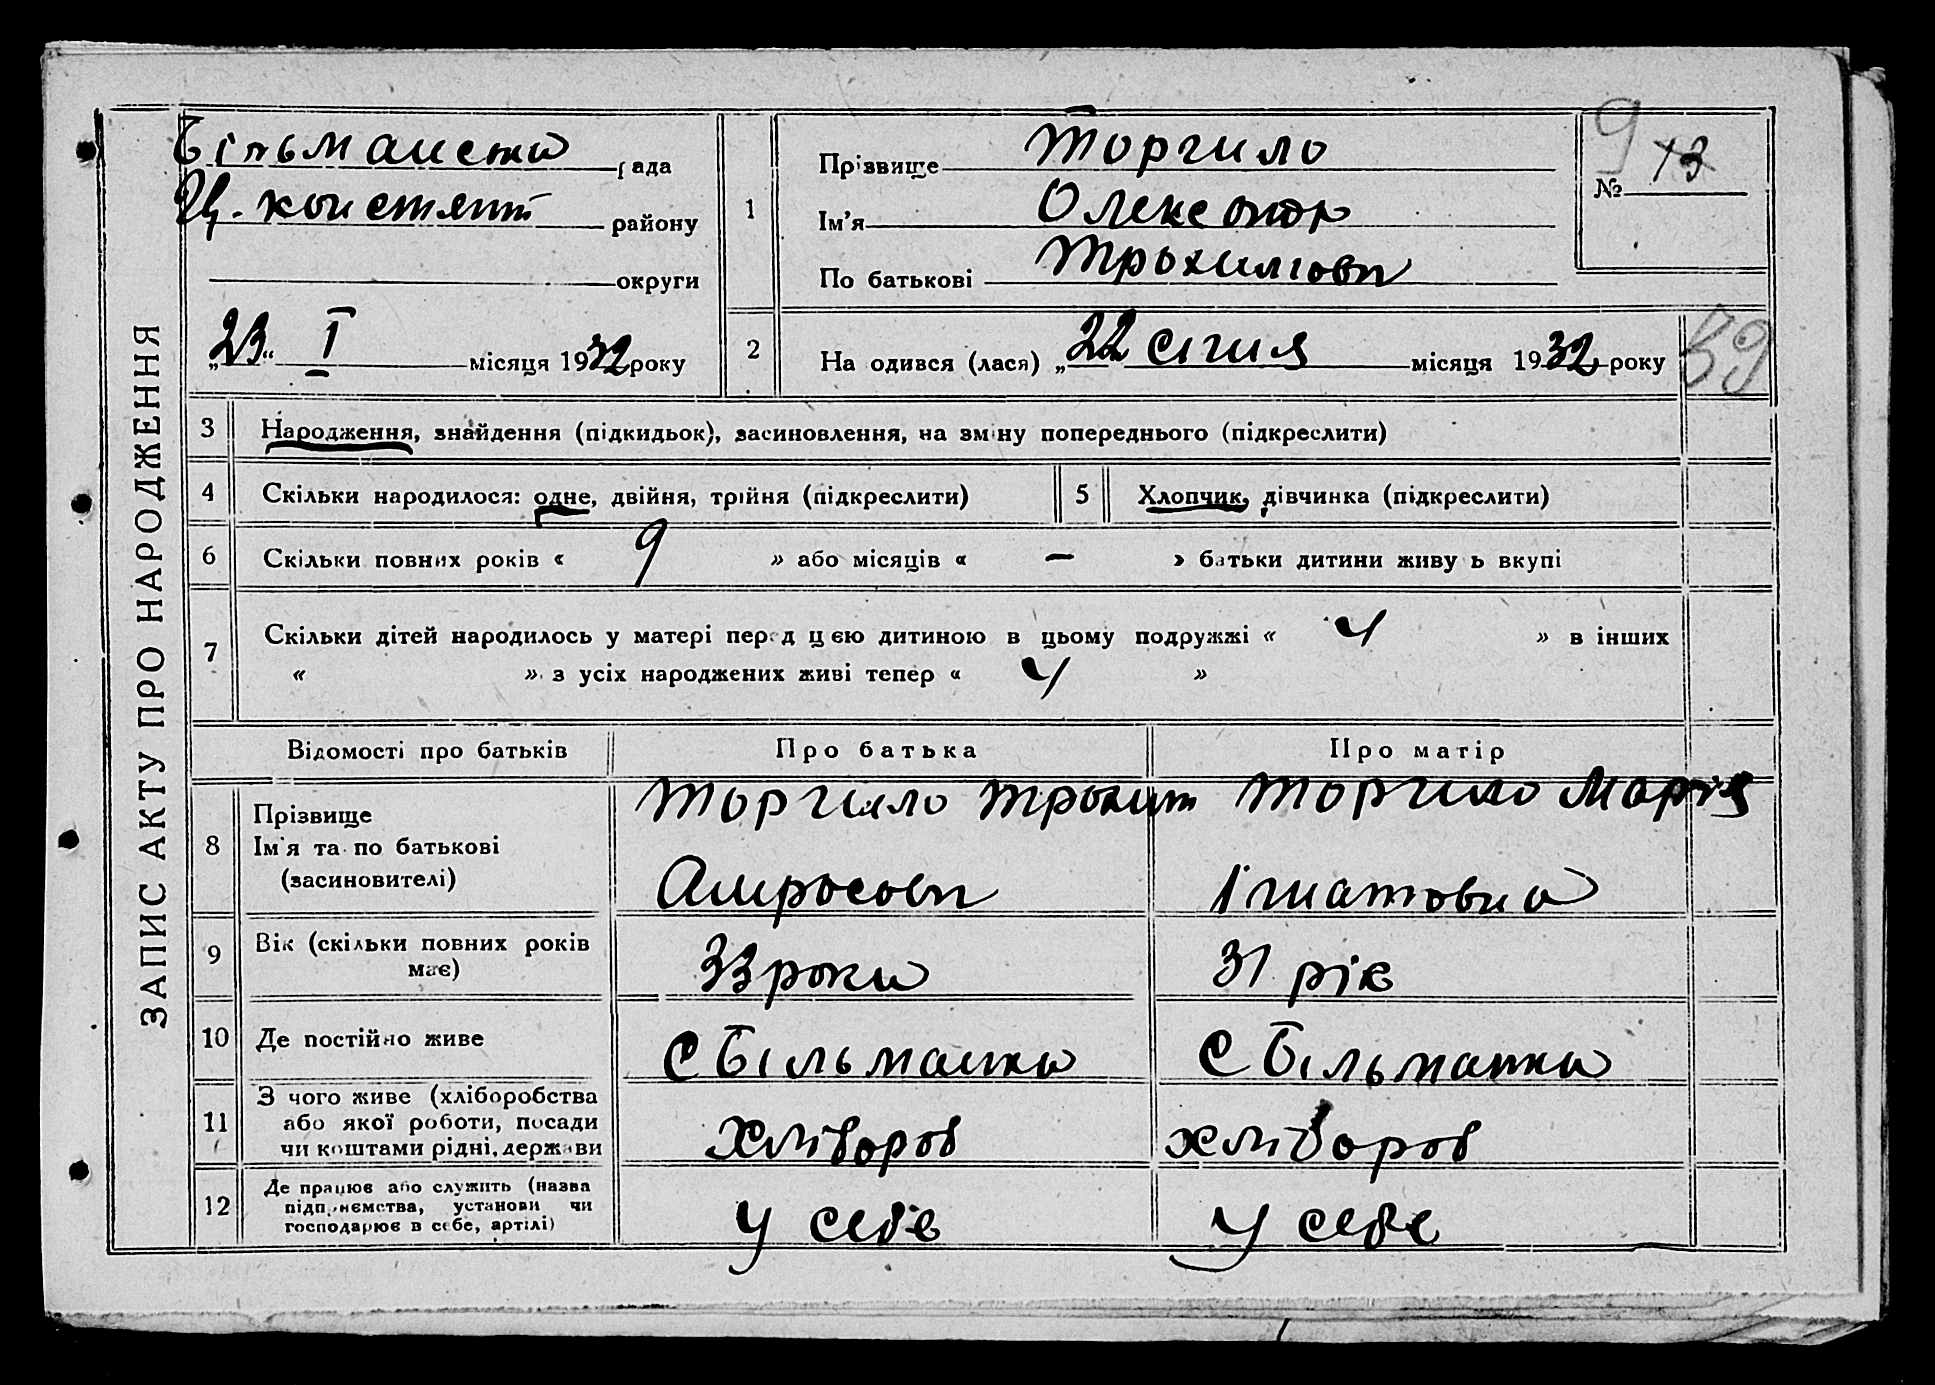 ЗАПИС АКТУ ПРО НАРОДЖЕННЯ
Більманська рада
району
округи
„23“ I місяця 1932 року
1
Прізвище Торгило
Ім’я Олександр
По батькові Трохимови
№ 13
9
2
На одився (лася) „22 січня місяця 1932 року
39
3 Народження, знайдення (підкидьок), засиновлення, на зміну попереднього (підкреслити)
4 Скільки народилося: одне, двійня, трійня (підкреслити)
5 Хлопчик, дівчинка (підкреслити)
6 Скільки повних років « 9 » або місяців « — » батьки дитини живу ь вкупі
7 Скільки дітей народилось у матері перед цією дитиною в цьому подружжі « 4 » в інших
« » з усіх народжених живі тепер « 4 »
Відомості про батьків Про батька Про матір
8
Прізвище
Ім’я та по батькові
(засиновителі)
Торгило Трохим
Амросови
Торгило Марія
Ігнатовна
9
Вік (скільки повних років
має)
33 роки
31 рік
10 Де постійно живе
С Більманка
С Більманка
11
З чого живе (хліборобства
або якої роботи, посади
чи коштами рідні, держави
Хлібороб
хлібороб
12
Де працює або служить (назва
підприємства, установи чи
господарює в себе, артілі)
у себе
у себе